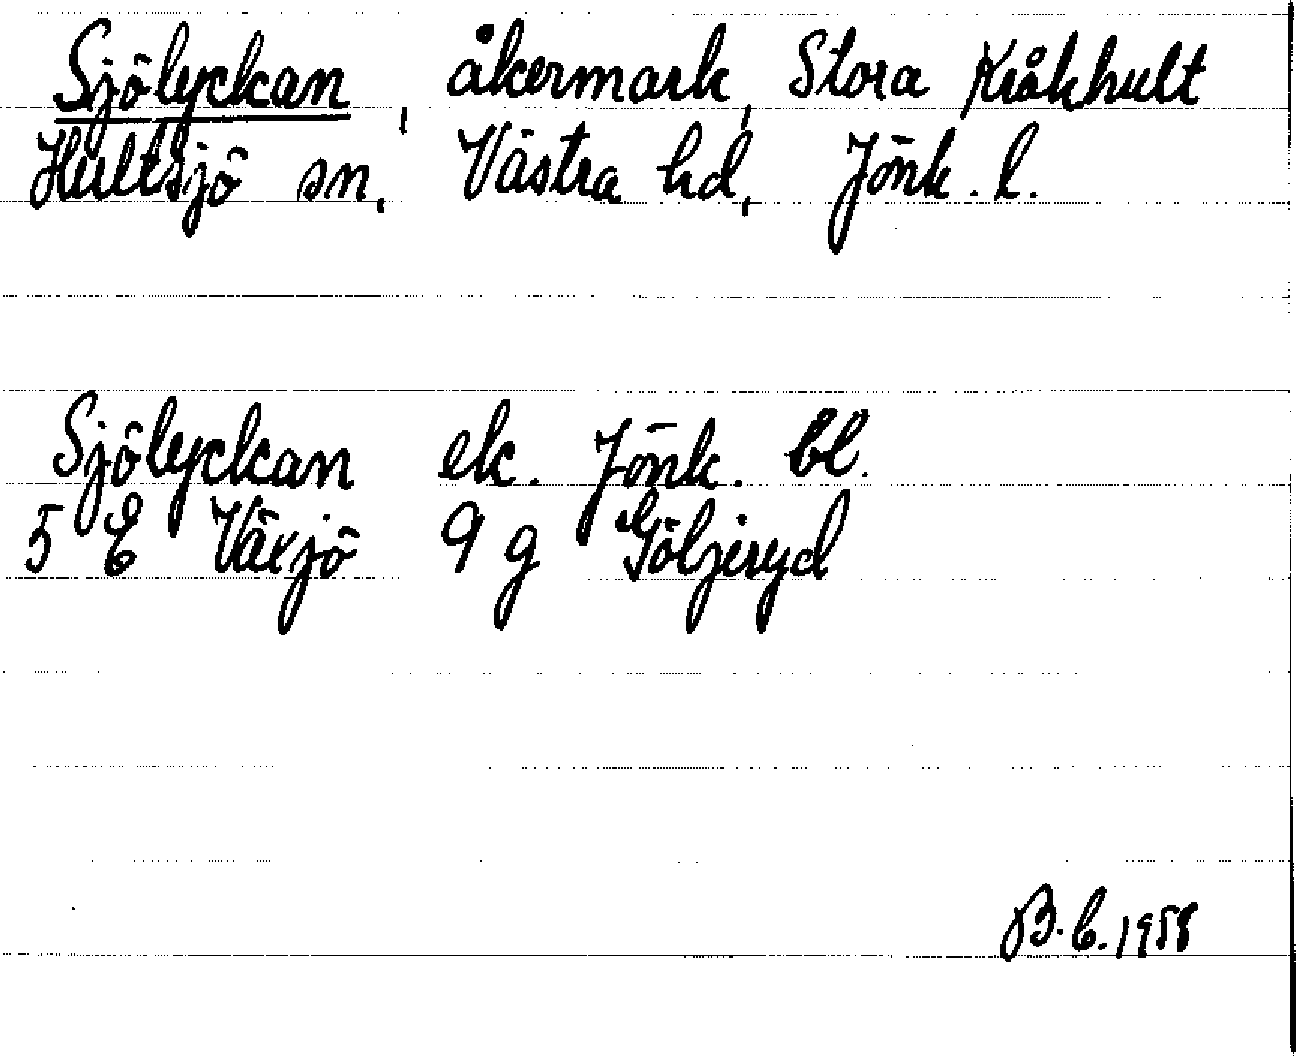 Sjölyckan, åkermark, Stora Kråkhult
Hultsjö sn, Västra hd, Jönk. l.
Sjölyckan ek. Jönk. bl.
5 E Växjö 9 g Göljeryd
B. C. 1958